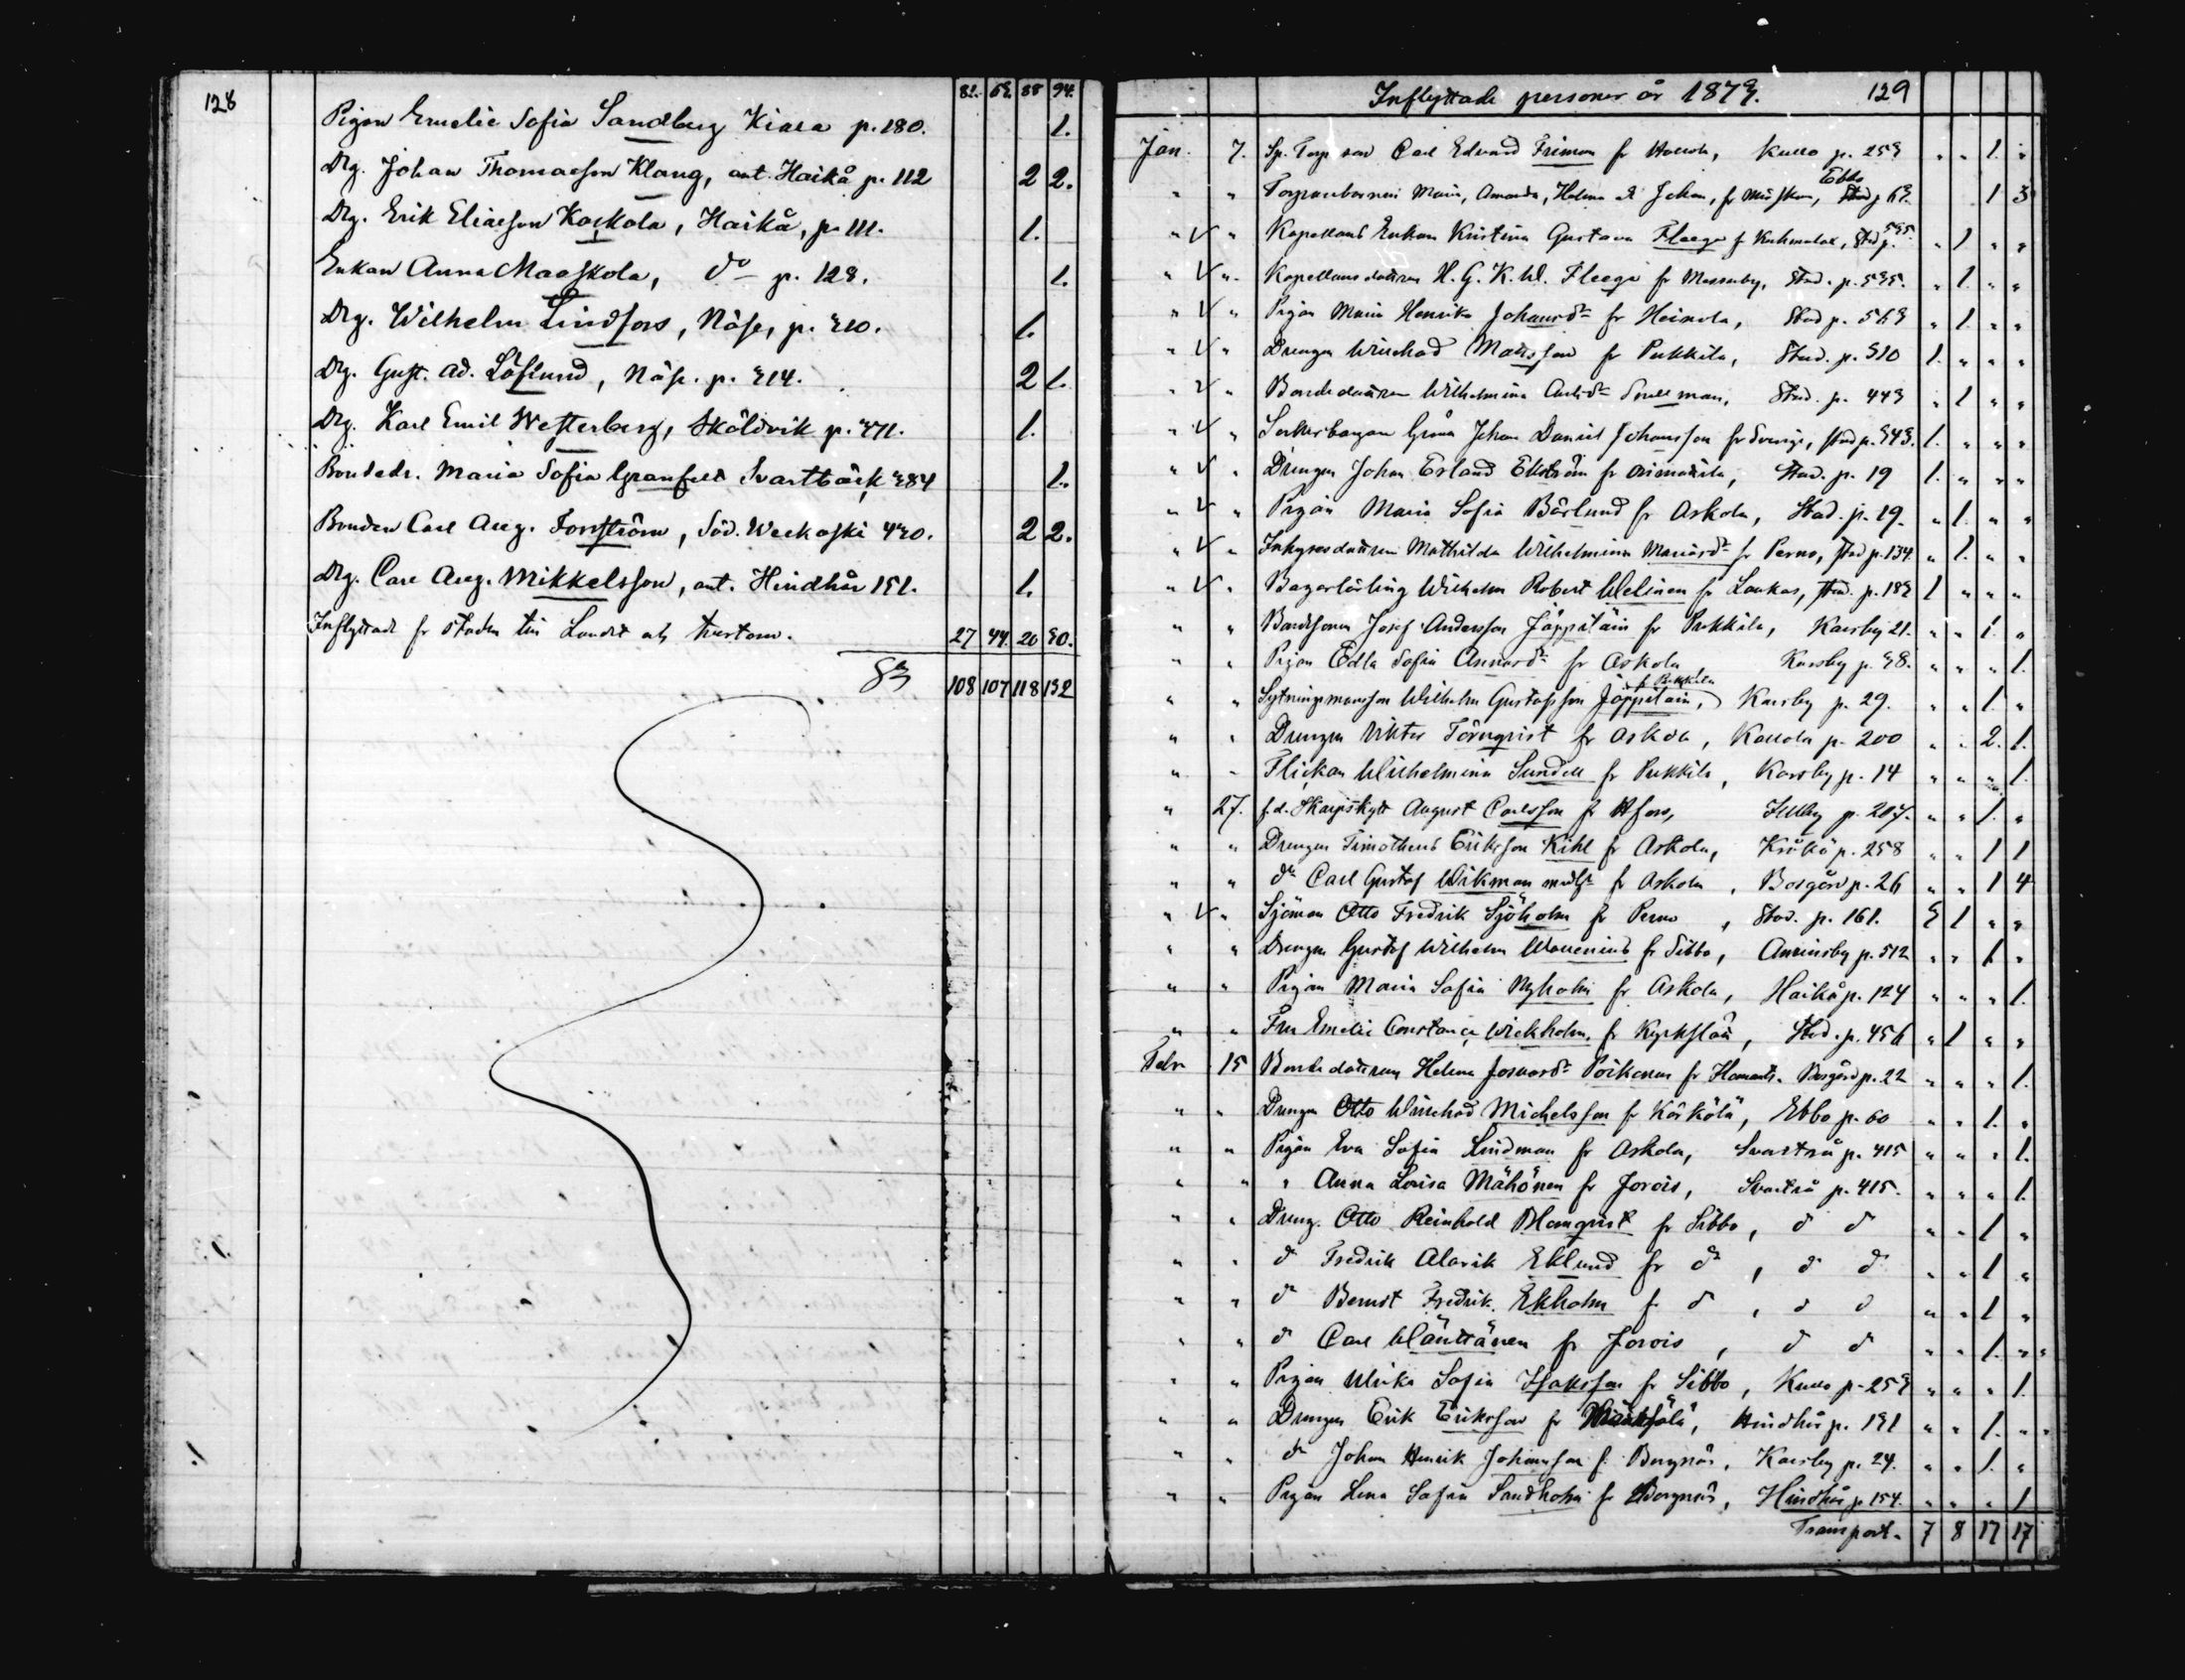 128
81. 63. 88 94.
Pigan Emelie Sofia Sandberg Kiala p. 180. 1.
Drg. Johan Thomasson Klang, ant. Haikå p. 112 2 2.
Drg. Erik Eliasson Koskola, Haikå, p. 111. 1.
Enkan Anna Maaskola, do p. 128. 1.
Drg. Wilhelm Lindfors, Näse, p. 310. 1.
Drg. Gust. Ad. Löflund, Näse. p. 314. 2 1.
Drg. Karl Emil Westerberg, Sköldvik p. 371. 1.
Bondedr. Maria Sofia Granfelt Svartbäck 384 1.
Bonden Carl Aug. Forsström, Söd. Weckoski 430. 2 2.
Drg. Carl Aug. Mikkelsson, ant. Hindhår 151. 1.
Inflyttade fr staden till Landet och tvertom. 27 44. 20 30.
108 107 118 132
Inflyttade personer år 1873. 129
Jan. 7. Sp. Torp. son Carl Edvard Friman fr Hollola, Kullo p. 253 " " 1. "
" " Torparebarnen Maria, Amanda, Helena o Johan, fr Mörskom, Ebbo p. 63. 1 3
" V " Kapellans Enkan Kristina Gustava Fleege fr Kuhmalax, Stad p. 535. " 1 " "
" V " Kapellansdottren H. G. K. W. Fleege fr Messuby, Stad. p. 535. " 1. " "
" V " Pigan Maria Henrika Johansdr fr Heinola, Stad p. 563 " 1. " "
" V " Drengen Winehad Matsson fr Pukkila, Stad. p. 510 1. " " "
" V " Bondedottren Wilhelmina Carlsdr Snellman, Stad. p. 443 " 1 " "
" V " Sockerbagare Johan Daniel Johansson fr Sverige, Stad p. 343. 1. " " "
" V " Drengen Johan Erland Ekström fr Artsjö, Stad. p. 19 1. " " "
" V " Pigan Maria Sofia Bärlund fr Askola, Stad. p. 19. " 1. " "
" V " Inhysesdottren Mathilda Wilhelmina Mariasdr fr Perno, Stad p. 134 " 1. " "
" V " Bagarlärling Wilhelm Robert Welinen fr Laukas, Stad. p. 183 1 " " "
" " Bondsonen Josef Andersson Jäppiläin fr Pukkila, Karsby 21. " " 1. "
" " Pigan Edla Sofia Annasdr fr Askola, Karsby p. 38. " " " 1.
" " Sytningsmanson Wilhelm Gustafsson Jäppiläin, fr Pukkila Karsby p. 29. " " 1. "
" " Drengen Viktor Törnqvist fr Askola, Kallola p. 200 " " 2. 1.
" " Flickan Wilhelmina Sundell fr Pukkila, Karsby p. 14 " " " 1.
" 27. f.d. Skarpskytt August Carlsson fr Hfors, Illby p. 207. " " 1. "
" " Drengen Timotheus Eriksson Kihl fr Askola, Kråkö p. 258 " " 1 1
" " do Carl Gustaf Wikman m. h. fr Askola, Borgård p. 26 " " 1 4
" V " Sjöman Otto Fredrik Sjöholm fr Perno, Stad. p. 161. 3 1 " "
" " Drengen Gustaf Wilhelm Wallenius fr Sibbo, Anvinsby p. 512 " " 1. "
" " Pigan Maria Sofia Nyholm fr Askola, Haikå p. 124 " " " 1.
" " Fru Emelie Constance Wiekholm, fr Kyrkslätt, Stad. p. 456 " 1 " "
Febr 15 Bondedottren Helena Josuasdr Poikonen fr Hamants. Borgård p. 22 " " " 1.
" " Drengen Otto Winehad Michelsson fr Kärkölä, Ebbo p. 60 " " 1. "
" " Pigan Eva Sofia Lindman fr Askola, Svartså p. 415 " " " 1.
" " " Anna Lovisa Mähönen fr Jorois, Svartså p. 415. " " " 1.
" " Dreng. Otto Reinhold Blomqvist fr Sibbo, d d " " 1 "
" " d Fredrik Alarik Eklund fr do, d d " " 1 "
" " d Berndt Fredrik Ekholm fr d, d d " " 1 "
" " d Carl Wänttänen fr Jorois, d d " " 1. " "
" " Pigan Ulrika Sofia Isaksson fr Sibbo, Kullo p. 253 " " " 1.
" " Drengen Erik Eriksson fr Mäntsälä, Hindhår p. 131 " " 1. " "
" " d Johan Henrik Johansson fr Borgnäs, Karsby p. 24. " " 1. "
" " Pigan Lena Sofia Sandholm fr Borgnäs, Hindhår p. 154. " " " 1
Transport. 7 8 17 17